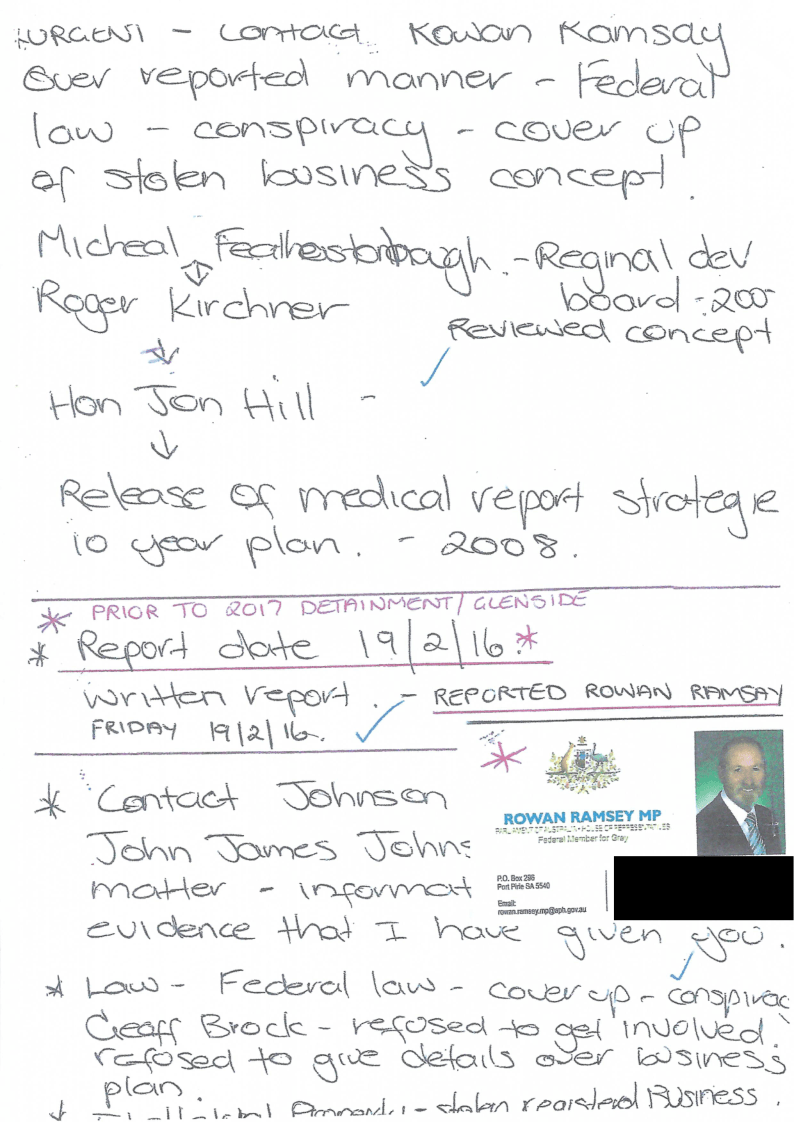 URGENT - Contact Rowan Ramsay
Over reported manner - Federal
law - conspiracy - cover up
of stolen business concept.
Micheal Featherstonhaugh. - Reginal dev
Roger Kirchner board - 200
Reviewed concept
Hon Jon Hill -
Release of medical report strategie
10 year plan. - 2008.
* PRIOR TO 2017 DETAINMENT/GLENSIDE
* Report date 19/2/16 *
written report. - REPORTED ROWAN RAMSAY
FRIDAY 19/2/16.
* Contact Johnson
John James Johns
matter - informat
evidence that I have given you.
ROWAN RAMSEY MP
PARLIAMENT OF AUSTRALIA • HOUSE OF REPRESENTATIVES
Federal Member for Grey
P.O. Box 296
Port Pirie SA 5540
Email:
rowan.ramsey.mp@aph.gov.au
* Law - Federal law - cover up - conspirac
Geoff Brock - refused to get involved.
refused to give details over business
plan.
- stolen registered Business.